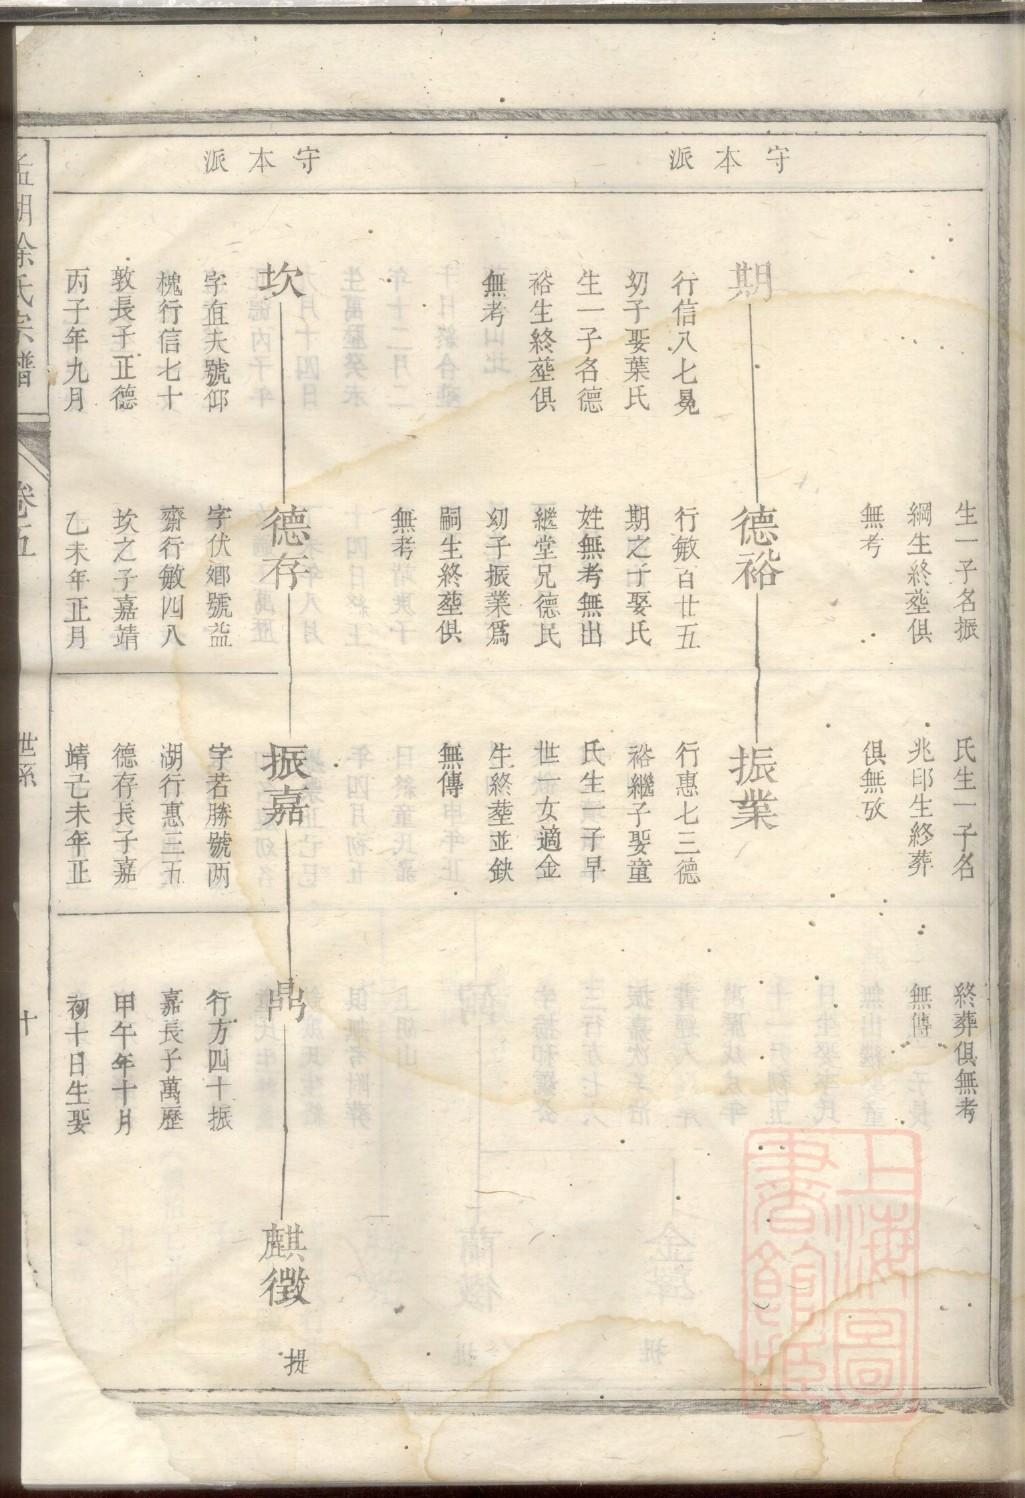 守本派
守本派
生一子名振
綱生終塟俱
無考
氏生一子名
兆印生終葬
俱無攷
終葬俱無考
無傳
期
行信八七晃
幼子娶葉氏
生一子名德
裕生終塟俱
無考
德裕
行敏百廿五
期之子娶氏
姓無考無出
繼堂兄德民
幼子振業爲
嗣生終塟俱
無考
振業
行惠七三德
裕繼子娶童
氏生一子早
世一女適金
生終塟並鈌
無傳
坎
字直夫號仰
槐行信七十
敦長子正德
丙子年九月
德存
字伏鄉號益
齋行敏四八
坎之子嘉靖
乙未年正月
振嘉
字若勝號两
湖行惠三五
德存長子嘉
靖己未年正
鼎
行方四十振
嘉長子萬歷
甲午年十月
初十日生娶
麒徵
提
孟湖徐氏宗譜
卷五
世系
十
上海圖書館藏